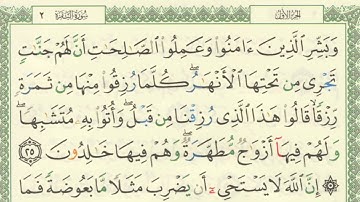 الجزء الأول سورة البقرة ٢
وَبَشِّرِ ٱلَّذِينَ ءَامَنُوا۟ وَعَمِلُوا۟ ٱلصَّـٰلِحَـٰتِ أَنَّ لَهُمْ جَنَّـٰتٍ
تَجْرِى مِن تَحْتِهَا ٱلْأَنْهَـٰرُ ۖ كُلَّمَا رُزِقُوا۟ مِنْهَا مِن ثَمَرَةٍ
رِّزْقًا ۙ قَالُوا۟ هَـٰذَا ٱلَّذِى رُزِقْنَا مِن قَبْلُ ۖ وَأُتُوا۟ بِهِۦ مُتَشَـٰبِهًا ۖ
وَلَهُمْ فِيهَآ أَزْوَٰجٌ مُّطَهَّرَةٌ ۖ وَهُمْ فِيهَا خَـٰلِدُونَ ٢٥
۞ إِنَّ ٱللَّهَ لَا يَسْتَحْىِۦٓ أَن يَضْرِبَ مَثَلًا مَّا بَعُوضَةً فَمَا